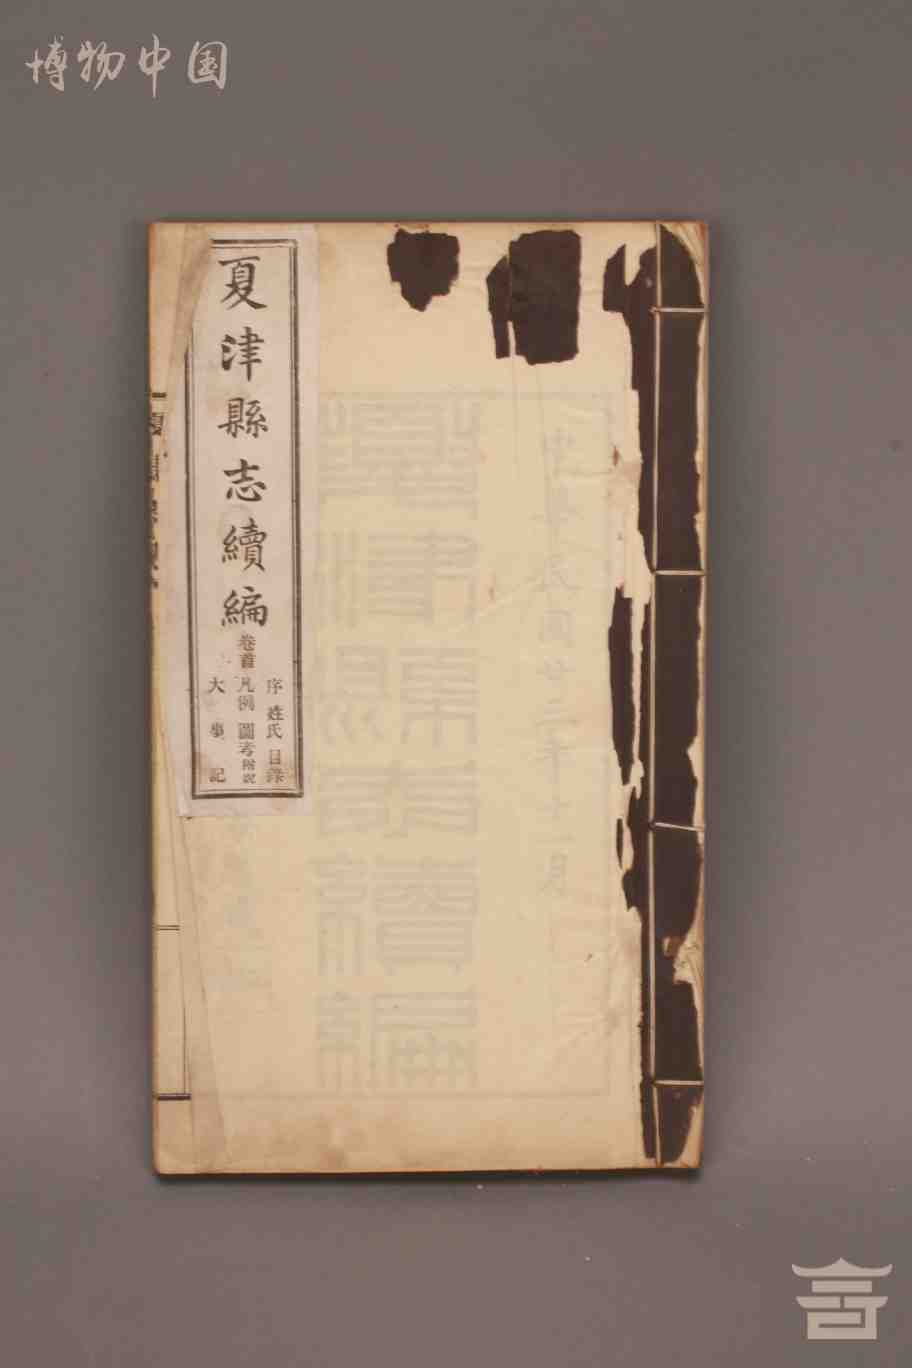 博物中国
夏津縣志續編
卷首
序 姓氏 目錄
凡例 圖考附說
大事記
中華民國廿二年十一月
夏津縣志續編